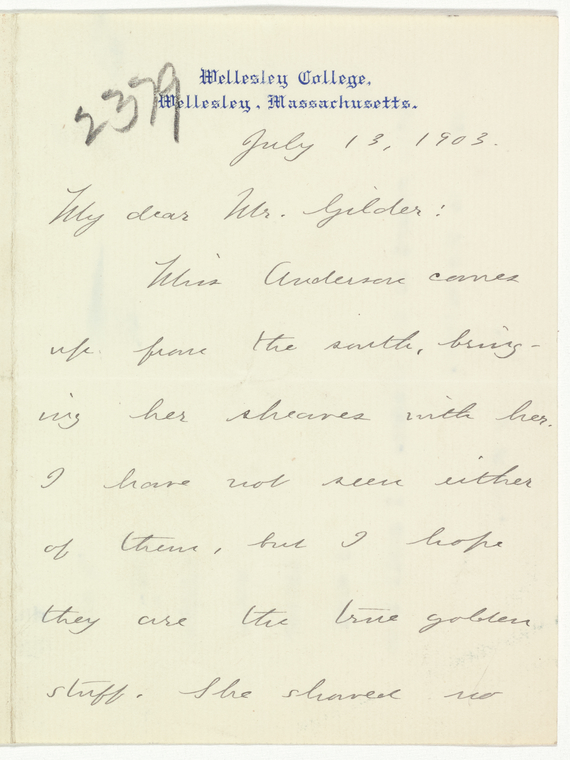 Wellesley College,
Wellesley, Massachusetts.
2379
July 13, 1903.
My dear Mr. Gilder:
Miss Anderson comes
up from the south, bring-
ing her sheaves with her.
I have not seen either
of them, but I hope
they are the true golden
stuff. She showed no